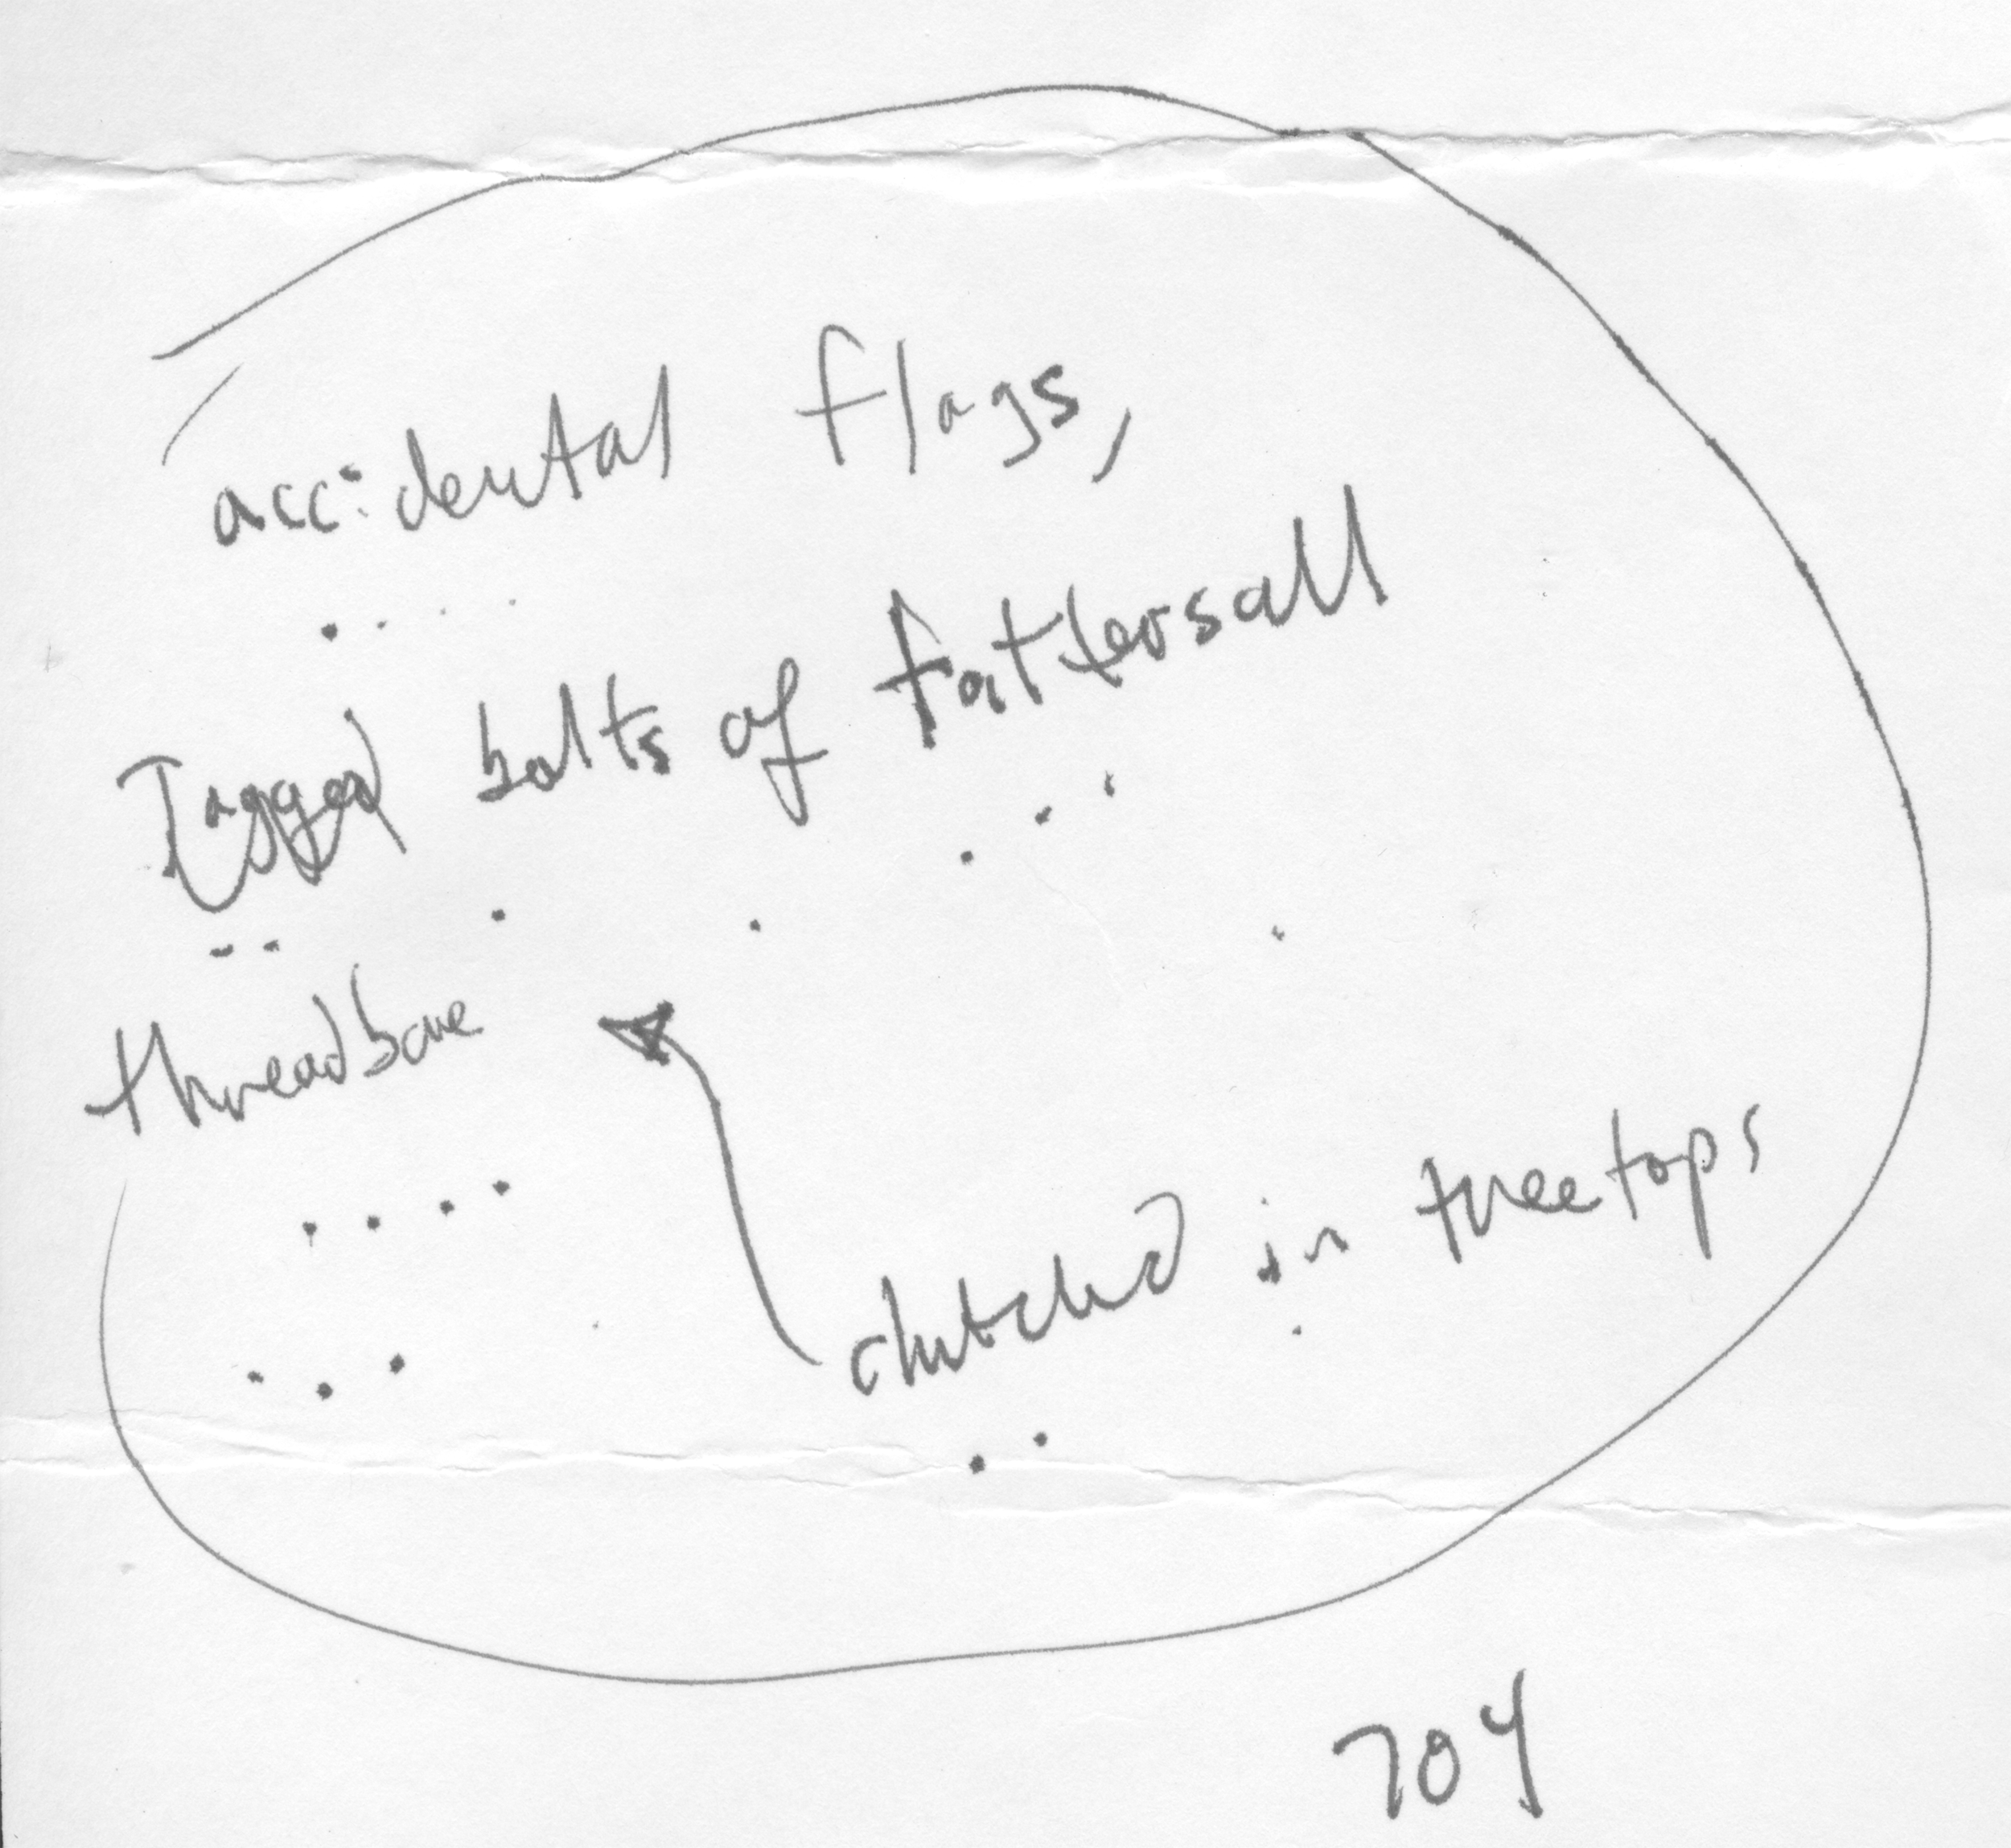 accidental flags,
Jagged bolts of tattersall
threadbare
clutched in treetops
704